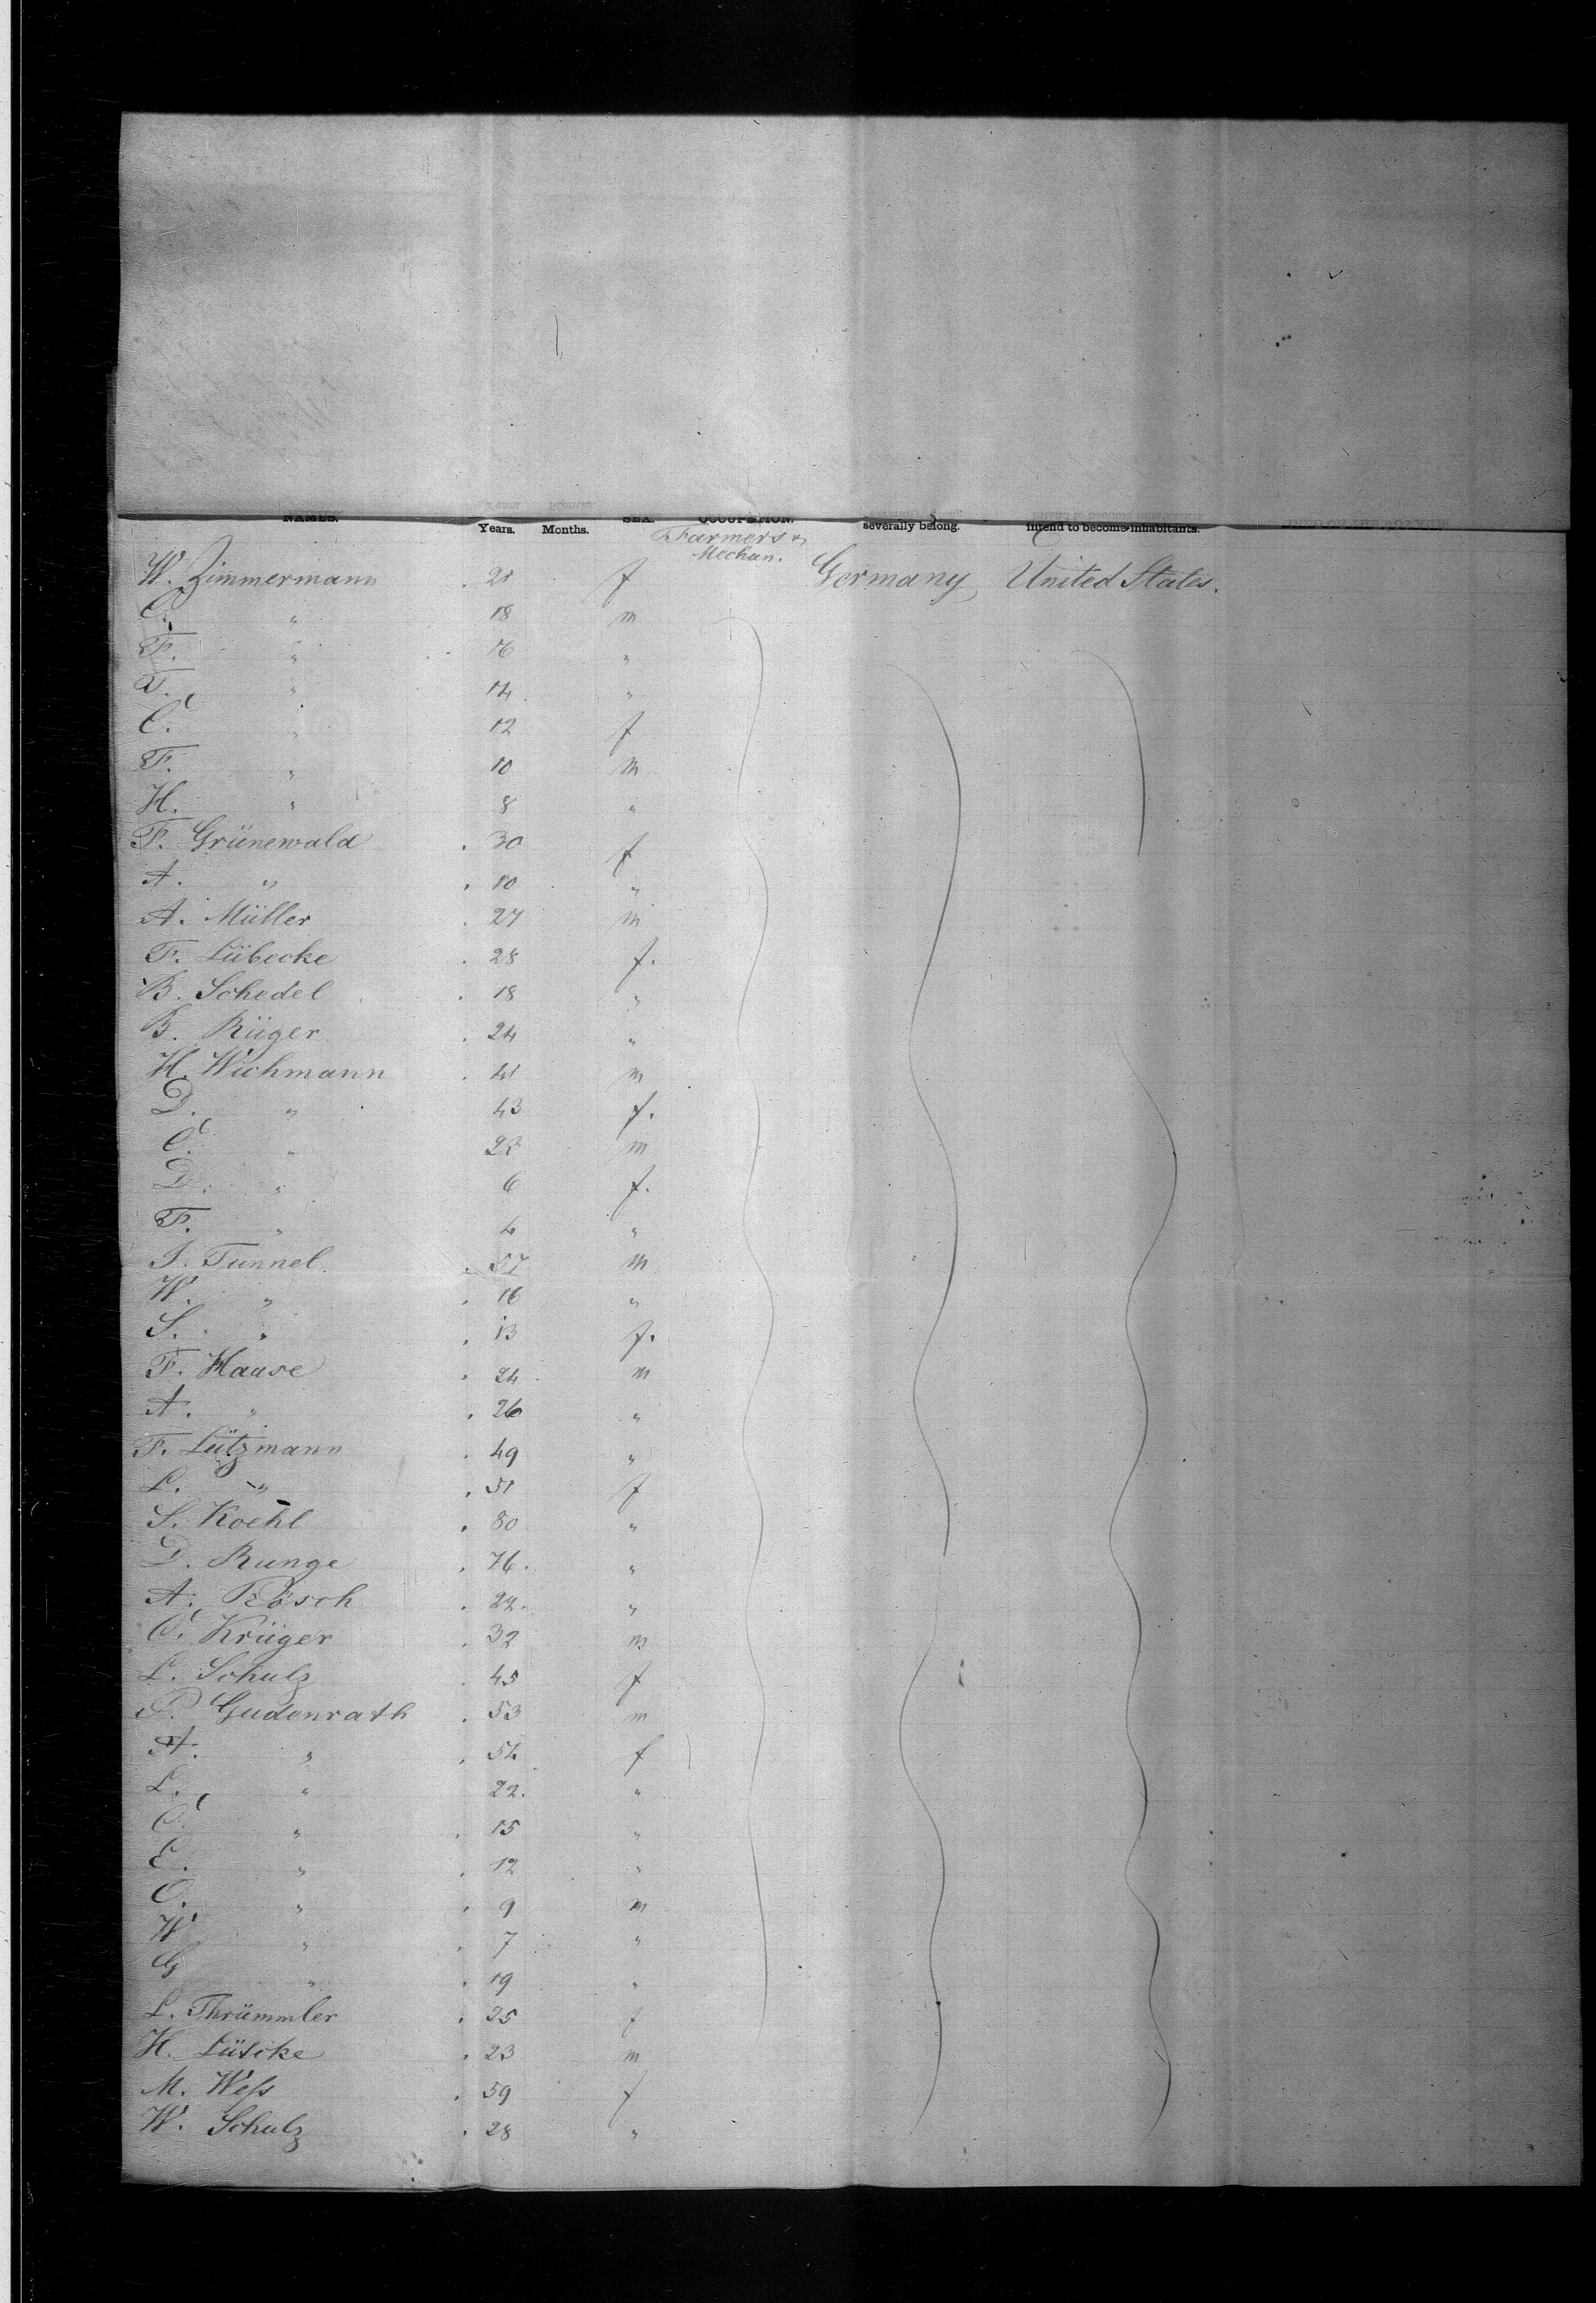 NAMES. Years. Months. SEX. OCCUPATION. severally belong. intend to become inhabitants.
Farmers &
Mechan.
W. Zimmermann . 21 f Germany United States.
C. " 18 m
F. " 16 "
T. " 14 "
C. " 12 f
F. " 10 m
H. " 8 "
F. Grünewald . 30 f
A. " . 10 "
A. Müller . 27 m
F. Lübecke . 28 f.
B. Schedel . 18 "
B. Rüger . 24 "
H. Wichmann . 41 m
D. " 43 f.
C. " 23 m
D. " 6 f.
F. " 4 "
J. Tunnel . 57 m
W. " . 16 "
S. " . 13 f.
F. Haase . 24 m
A. " . 26 "
F. Lützmann . 49 "
L. " . 51 f
S. Koehl . 80 "
D. Runge . 76. "
A. Rösch . 22. "
C. Krüger . 32 m
L. Schulz . 45 f
P. Gudenrath . 53 m
A. " . 54 f
L. " 22. "
C. " . 15 "
E. " . 12 "
C. " . 9 m
W " . 7 "
G " . 19 "
L. Thrümmler . 25 f
H. Lütcke . 23 m
M. Weſs . 59 f
W. Schulz . 28 "